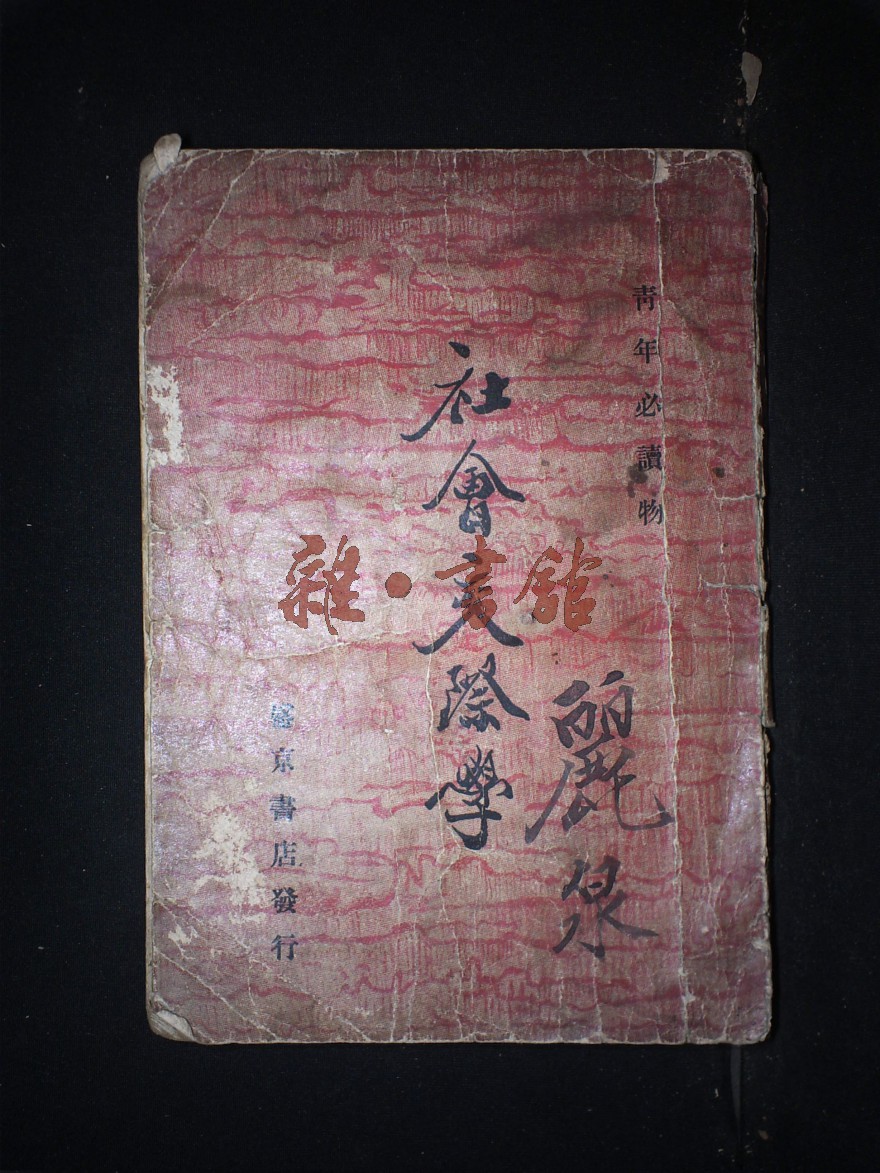 青年必讀物
社會交際學
麗泉
盛京書店發行
雜·書館